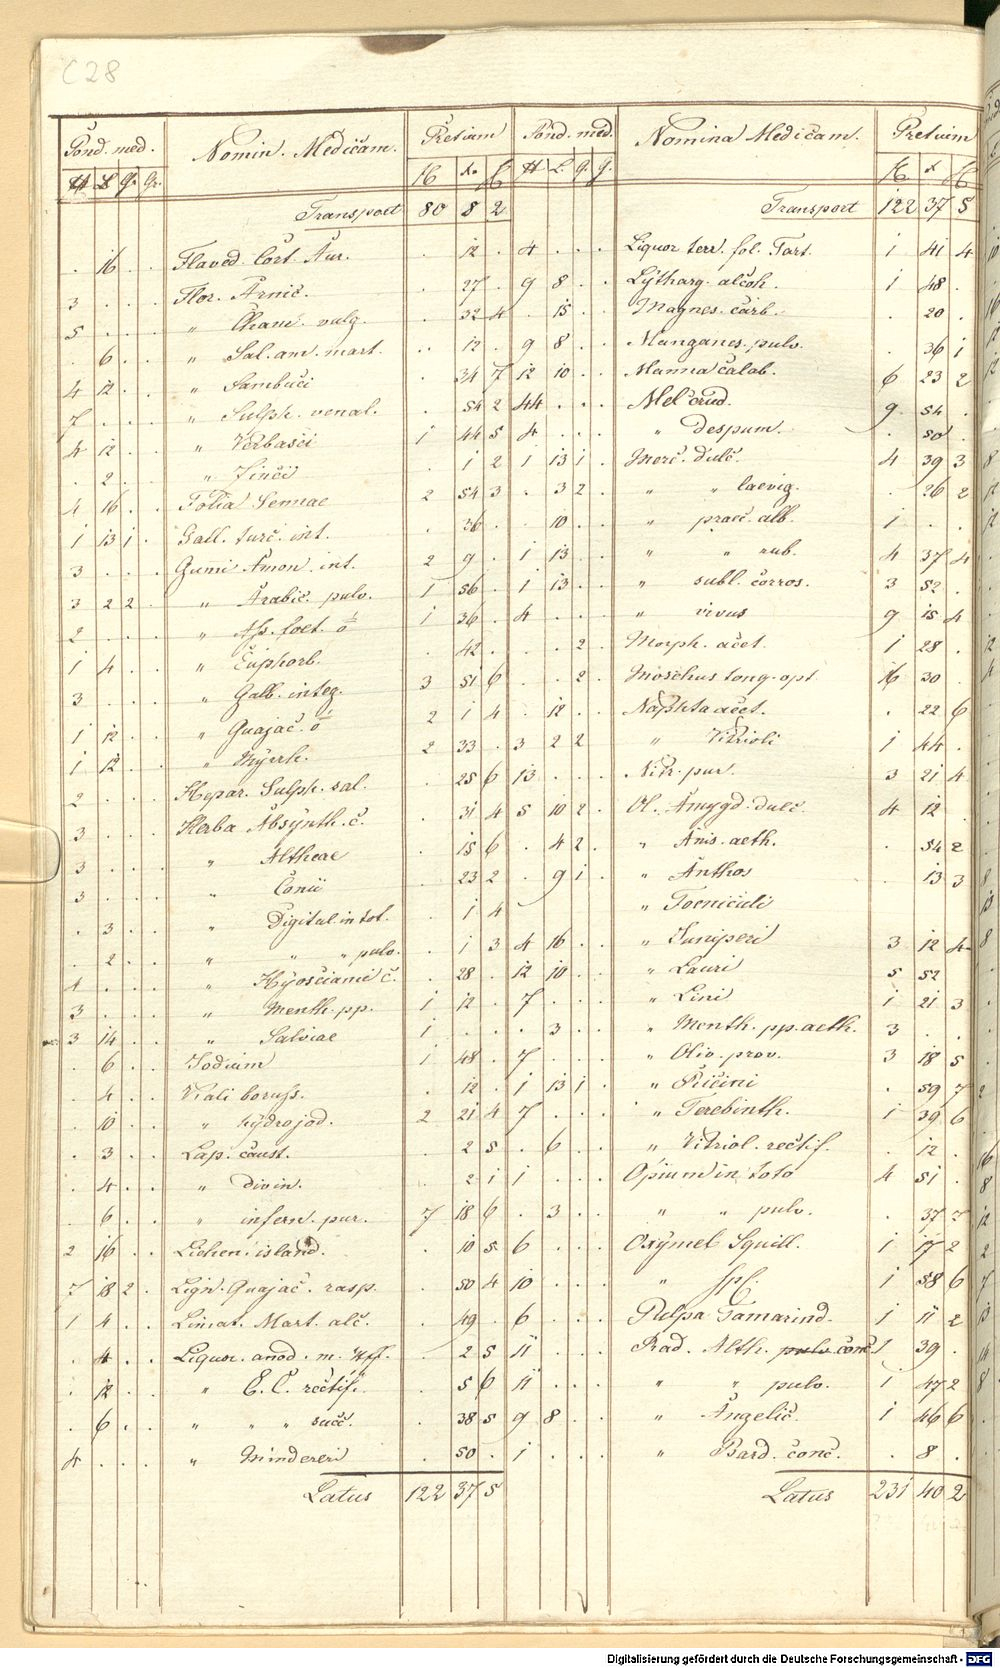 C 28
Pond. med. Nomin. Medicam. Pretium
Transport 80 8 2
. 16 . . Flaved. Cort. Aur. . 12 .
3 . . . Flor. Arnic. . 27 .
5 . . . " Cham. vulg. . 32 4
. 6 . . " Sal. am. mart. . 12 .
4 12 . . " Sambuci . 34 7
7 . . . " Sulph. venal. . 54 2
4 12 . . " Verbasci 1 44 5
. 2 . . " Zinci . 1 2
4 16 . . Folia Sennae 2 54 3
1 13 1 . Gall. turc. int. . 36 .
3 . . . Gumi Amon. int. 2 9 .
3 2 2 . " Arabic. pulv. 1 56 .
2 . . . " Ass. foet. 1 36 .
1 4 . . " Euphorb. . 42 .
3 . . . " Galb. integ. 3 51 6
1 12 . . " Guajac. 2 1 4
1 12 . . " Myrrh. 2 33 .
2 . . . Hepar. Sulph. sal. . 25 6
3 . . . Herba Absynth. c. . 31 4
3 . . . " Altheae . 15 6
3 . . . " Conii . 23 2
. 3 . . " Digital. in tot. . 1 4
. 2 . . " " " pulv. . 1 3
4 . . . " Hyosciami c. . 28 .
3 . . . " Menth. pp. 1 12 .
3 14 . . " Salviae 1 . .
. 6 . . Jodium 1 48 .
. 4 . . Kali boruss. . 12 .
. 10 . . " hydrojod. 2 21 4
. 3 . . Lap. caust. . 2 5
. 4 . . " divin. . 2 1
. 6 . . " infern. pur. 7 18 6
2 16 . . Lichen. island. . 10 5
7 18 2 . Lign. Guajac. rasp. . 50 4
1 4 . . Limat. Mart. alc. . 49 .
. 4 . . Liquor. anod. m. Hff. . 2 5
. 12 . . " C. C. rectif. . 5 6
. 6 . . " " " succ. . 38 5
4 . . . " Mindereri . 50 .
Latus 122 37 5
Pond. med. Nomina Medicam. Pretium
Transport 122 37 5
4 . . . Liquor terr. fol. Tart. 1 41 4
9 8 . . Lytharg. alcoh. 1 48 .
. 15 . . Magnes. carb. . 20 .
9 8 . . Manganes. pulv. . 36 1
12 10 . . Manna calab. 6 23 2
44 . . . Mel crud. 9 54 .
4 . . . " despum. . 50 .
1 13 1 . Merc. dulc. 4 39 3
. 3 2 . " " laevig. . 26 2
. 10 . . " praec. alb. 1 . .
1 13 . . " " rub. 4 37 4
1 13 . . " subl. corros. 3 52 .
4 . . . " vivus 9 15 4
. . 2 . Morph. acet. 1 28 .
. . 2 . Moschus tong. opt. 16 30 .
. 12 . . Naphta acet. . 22 6
3 2 2 " Vitrioli 1 44 .
13 . . . Nitr. pur. 3 21 4
5 10 2 . Ol. Amygd. dulc. 4 12
. 4 2 . " Anis. aeth. . 54 2
. 9 1 . " Anthos . 13 3
" Foeniculi
4 16 . . " Juniperi 3 12 4
12 10 . . " Lauri 5 52
7 . . . " Lini 1 21 3
. 3 . . " Menth. pp. aeth. 3 . .
7 . . . " Oliv. prov. 3 18 5
1 13 1 . " Ricini . 59 7
7 . . . " Terebinth. 1 39 6
. 6 . . " Vitriol. rectif. . 12 .
1 . . . Opium in toto 4 51 .
. 3 . . " " pulv. . 37 7
6 . . . Oxymel Squill. 1 17 2
10 . . . " spl. 1 58 6
6 . . . Pulpa Tamarind. 1 11 2
11 . . . Rad. Alth. pulv. conc. 1 39 .
11 . . . " " pulv. 1 47 2
9 8 . . " Angelic. 1 46 6
1 . . . " Bard. conc. . 8 .
Latus 231 40 2
Digitalisierung gefördert durch die Deutsche Forschungsgemeinschaft - DFG